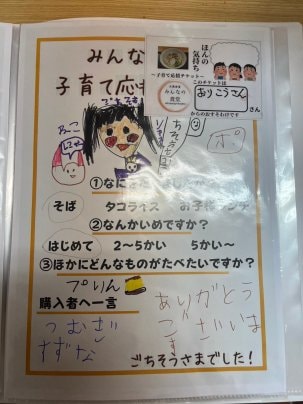 みんな
子育て応
ほんの
気持ち
〜子育て応援チケット〜
みんなの
食堂
このチケットは
ありこうさん
さん
からのおすそわけです
①なに
そば タコライス お子様
②なんかいめですか？
はじめて 2〜5かい 5かい〜
③ほかにどんなものがたべたいですか？
プリん
購入者へ一言
ありがとう
ございま
す
つむぎ
すずな
ごちそうさまでした！